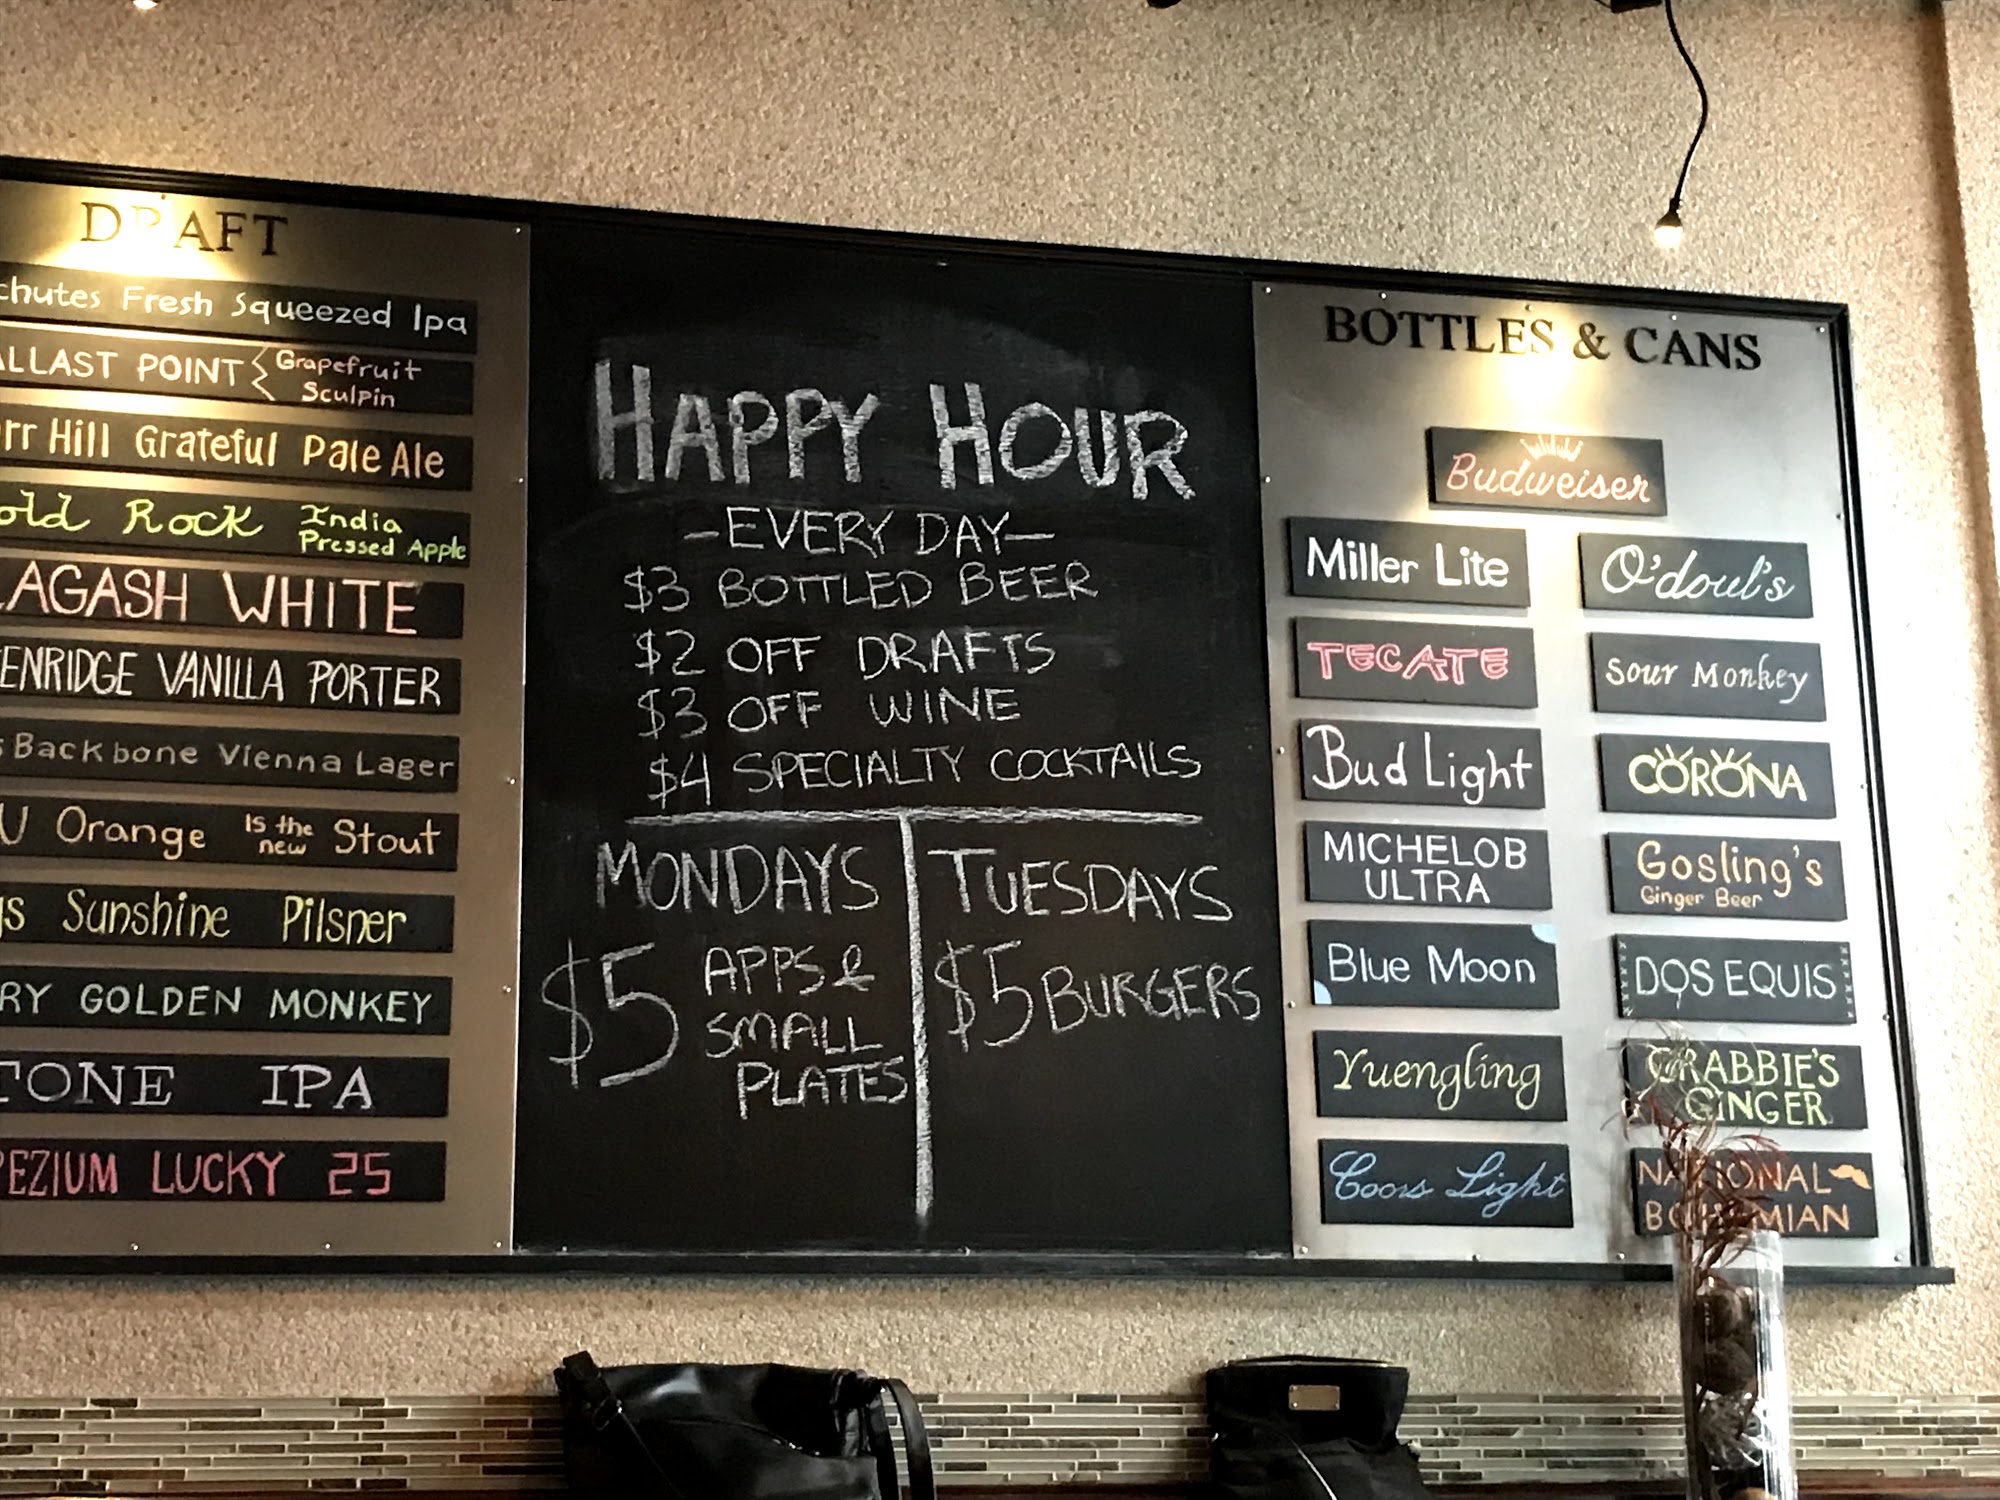 DRAFT
Fresh Squeezed Ipa
POINT Grapefruit
Sculpin
Hill Grateful Pale Ale
Rock India
Pressed Apple
WHITE
VANILLA PORTER
Backbone Vienna Lager
Orange Is the
new Stout
Sunshine Pilsner
GOLDEN MONKEY
IPA
LUCKY 25
HAPPY HOUR
-EVERY DAY-
$3 BOTTLED BEER
$2 OFF DRAFTS
$3 OFF WINE
$4 SPECIALTY COCKTAILS
MONDAYS
$5 APPS &
SMALL
PLATES
TUESDAYS
$5 BURGERS
BOTTLES & CANS
Budweiser
Miller Lite
TECATE
Bud Light
MICHELOB
ULTRA
Blue Moon
Yuengling
Coors Light
O'doul's
Sour Monkey
CORONA
Gosling's
Ginger Beer
DOS EQUIS
CRABBIE'S
GINGER
NATIONAL
BOHEMIAN